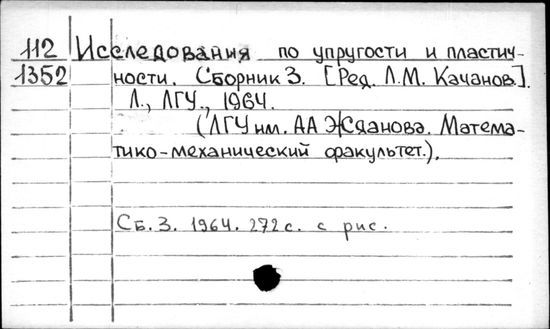 112 Исследования по упругости и пластич-
1352 ности. Сборник 3. [Ред. Л.М. Качанов.].
Л., ЛГУ., 1964.
(ЛГУ им. АА Жданова. Матема-
тико-механический факультет.).
Сб. 3. 1964. 272 с. с рис.